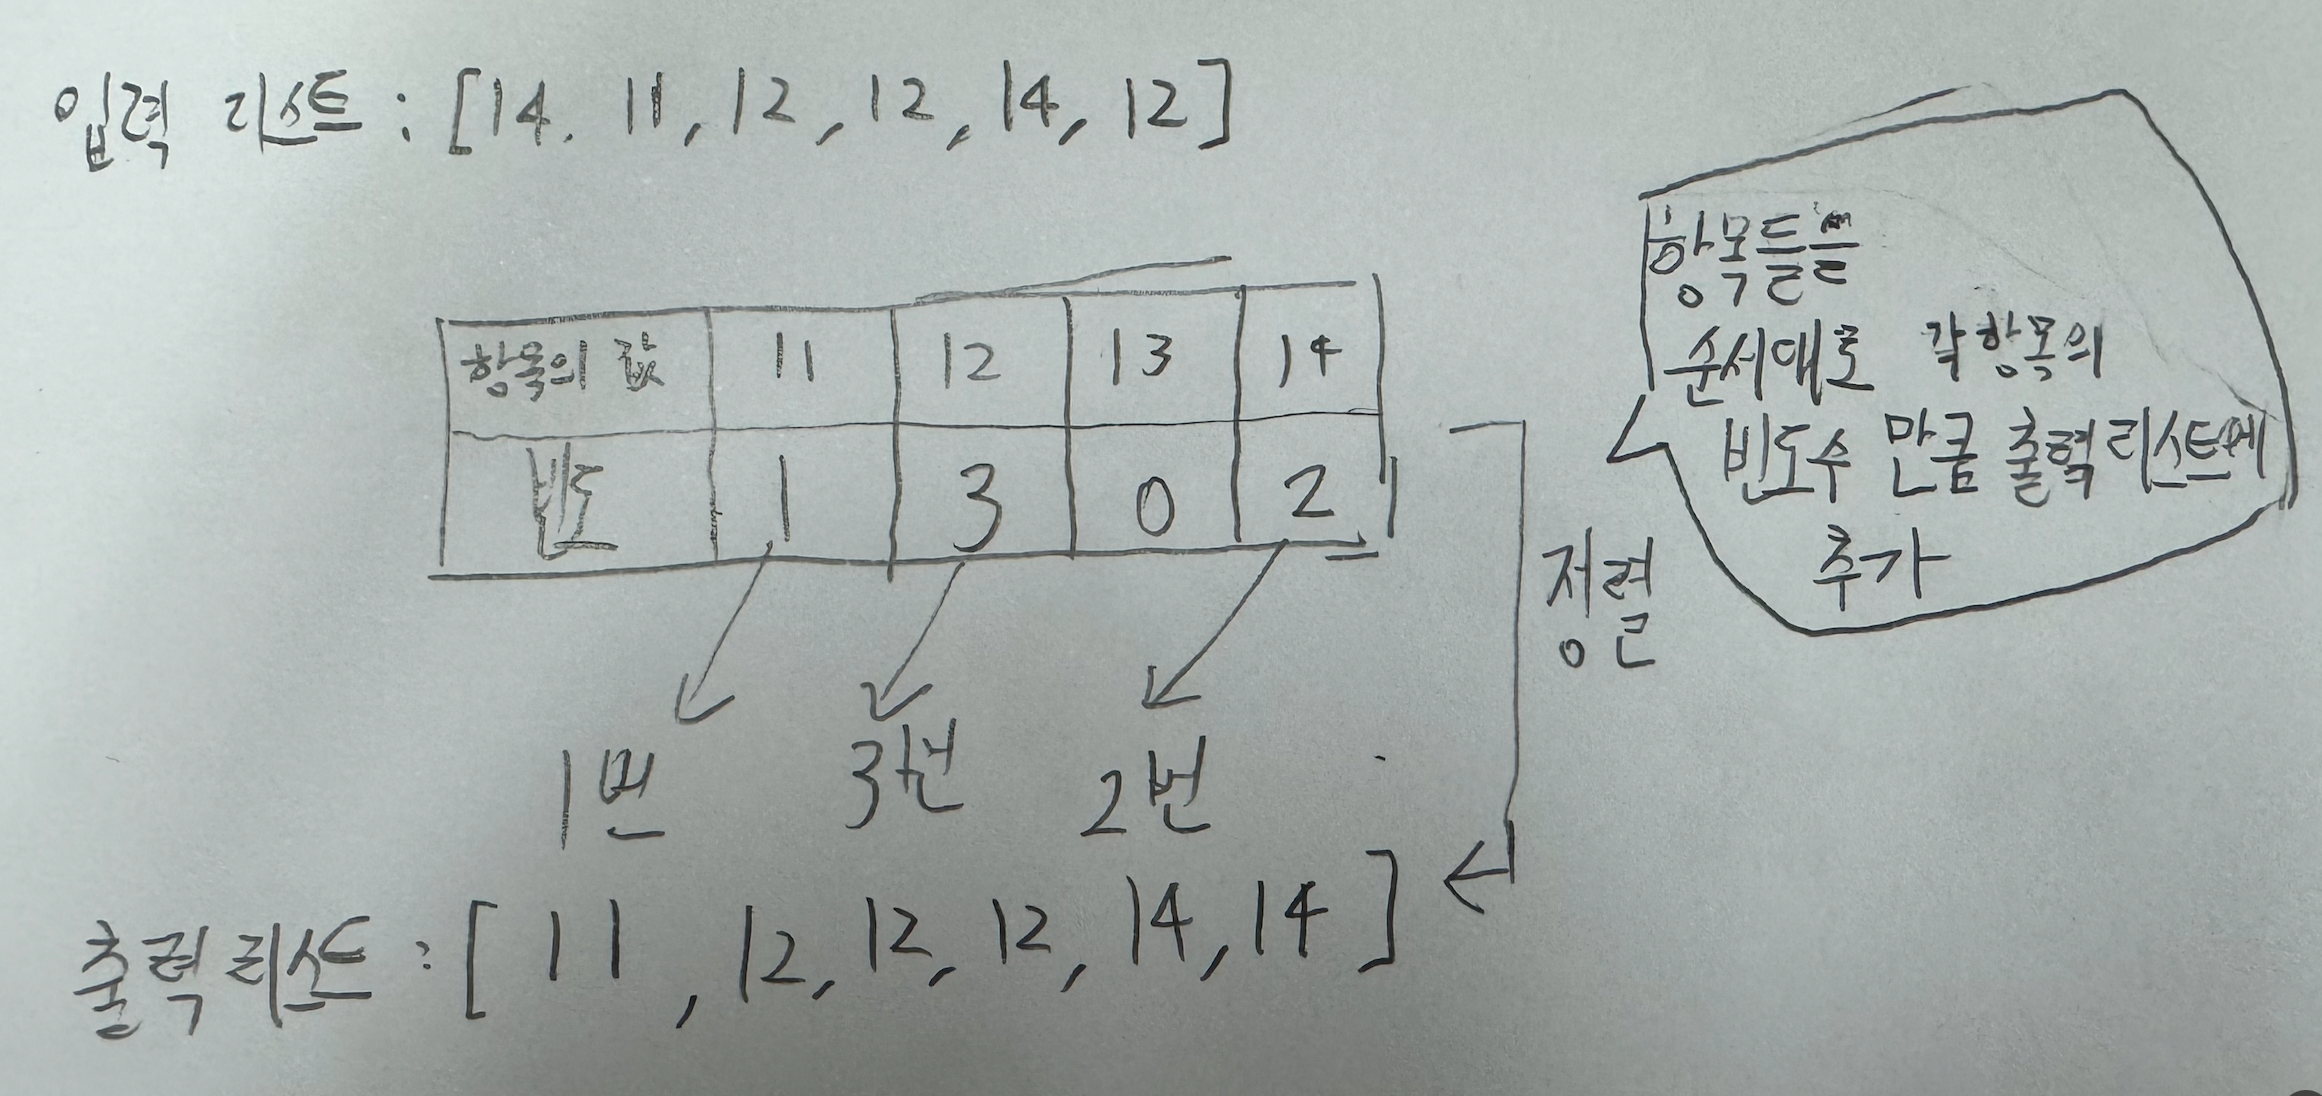 입력 리스트 : [14. 11, 12, 12, 14, 12]
항목의 값 11 12 13 14
빈도 1 3 0 2
1번 3번 2번
정렬
항목들을
순서대로 각 항목의
빈도수 만큼 출력 리스트에
추가
출력 리스트 : [11, 12, 12, 12, 14, 14]